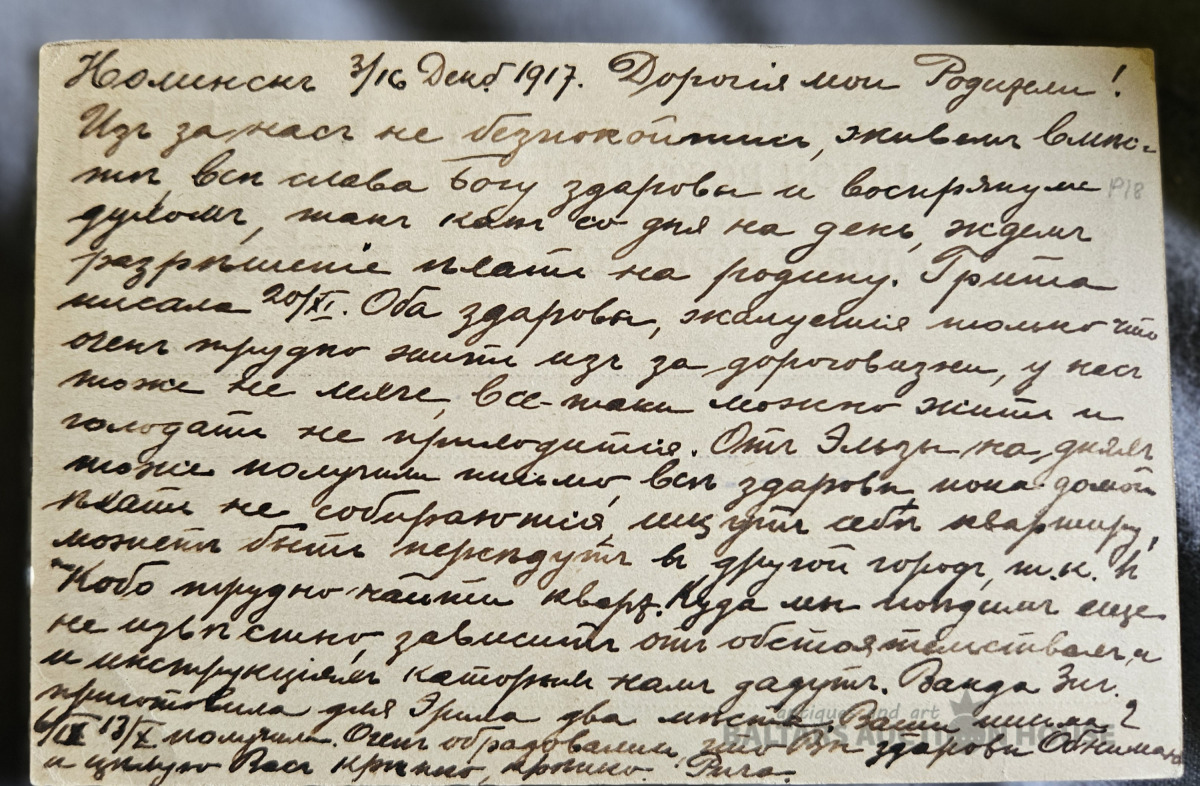 Нолинскъ 3/16 Декб 1917. Дорогія мои Родители!
Изъ за насъ не безпокойтись, живемъ вмѣс-
тѣ, всѣ слава Богу здоровы и воспрянули 1918
духомъ, такъ какъ со дня на день, ждемъ
разрѣшеніе ѣхать на родину. Грита
писала 20/XI. Оба здоровы, жалуются только что
очень трудно жить изъ за дороговизны, у насъ
тоже не легче, все-таки можно жить и
голодать не приходится. Отъ Эльзы на дняхъ
тоже получили письмо, всѣ здоровы, пока домой
ѣхать не собираются, ищутъ себѣ квартиру,
можетъ быть переѣдутъ въ другой городъ, т.к. в
Кобо трудно найти кварт. Куда мы поѣдемъ еще
не извѣстно, зависитъ отъ обстоятельствамъ, и
и инструкціямъ каторым намъ дадутъ. Ванда Зиг.
приготовила для Эриха два мѣста. Ваши письма 2
6/IX 13/X получили. Очень обрадовались, что Вы здоровы. Обнимаю
и цѣлую Васъ крѣпко, крѣпко. Рича.
antiques and art
BALTARS AUCTION HOUSE